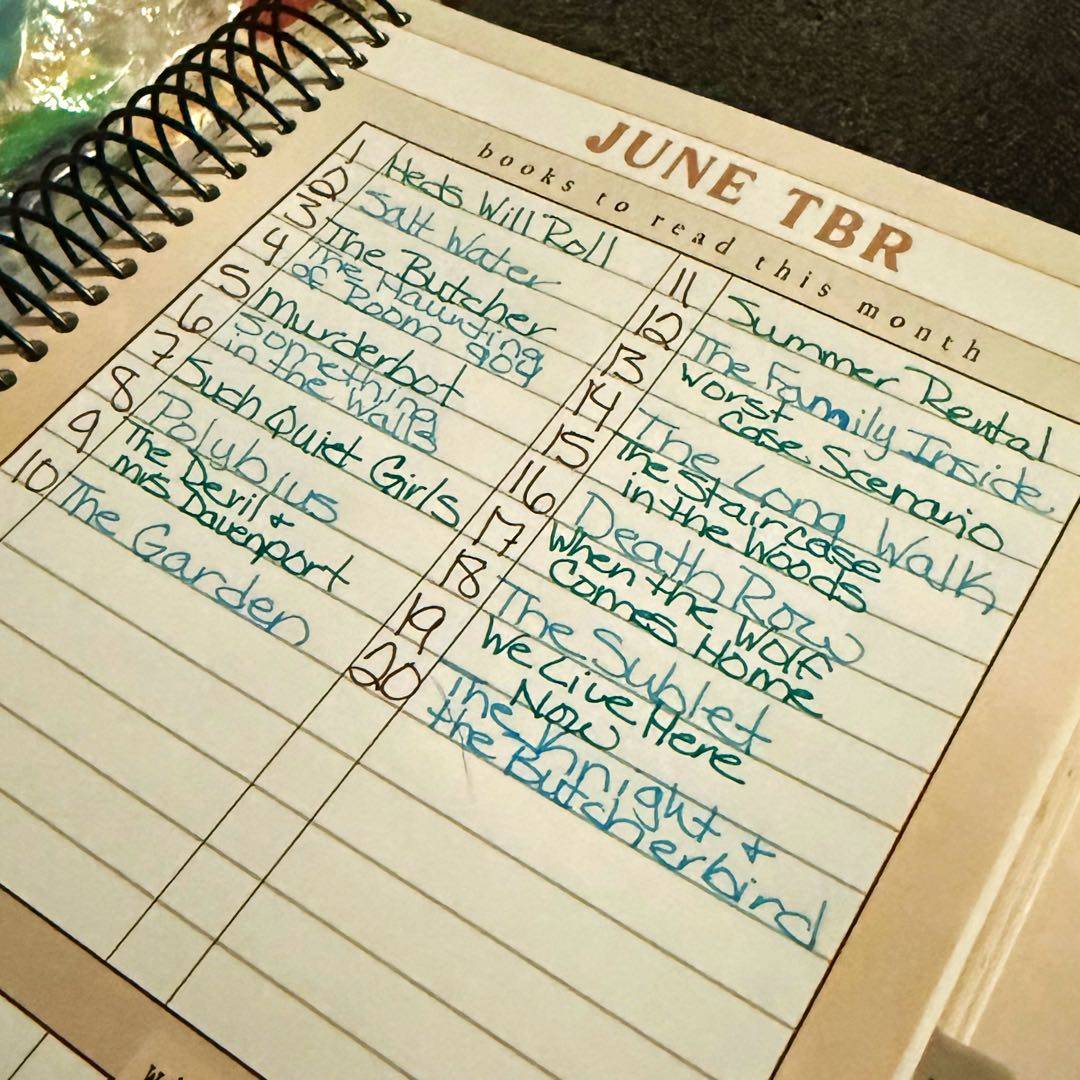 JUNE TBR
books to read this month
1 Heds Will Roll
2 Salt Water
3 The Butcher
4 The Haunting
of Room 904
5 Murderbot
6 Something
in the Walls
7 Such Quiet Girls
8 Polybius
9 The Devil +
Mrs Davenport
10 The Garden
11 Summer Rental
12 The Family Inside
13 Worst
Case Scenario
14 The Long Walk
15 The Staircase
in the Woods
16 Death Row
17 When the Wolf
Comes Home
18 The Sublet
19 We Live Here
Now
20 The Knight +
the Butcherbird